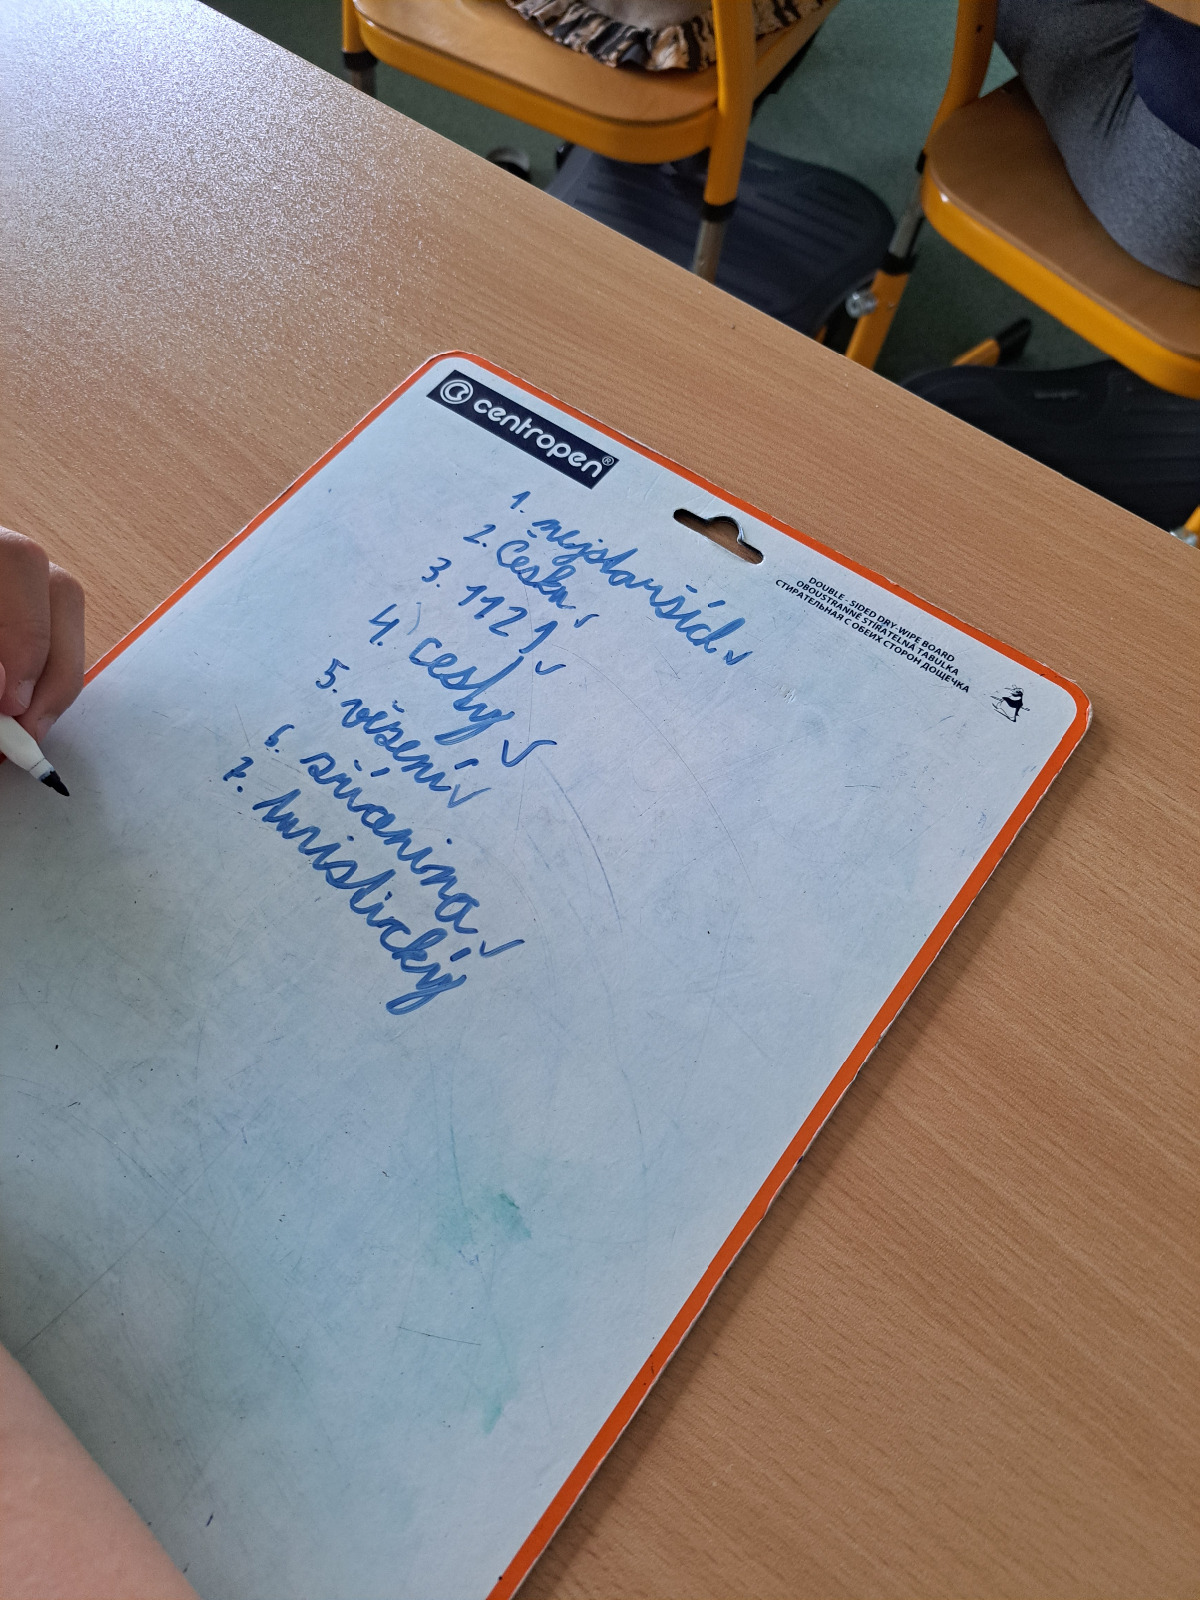 centropen®
DOUBLE - SIDED DRY-WIPE BOARD
OBOUSTRANNĚ STÍRATELNÁ TABULKA
СТИРАТЕЛЬНАЯ С ОБЕИХ СТОРОН ДОЩЕЧКА
1. nejstarších ✓
2. Česku ✓
3. 1121 ✓
4. cesty ✓
5. vězení ✓
6. zřícenina ✓
7. turistický